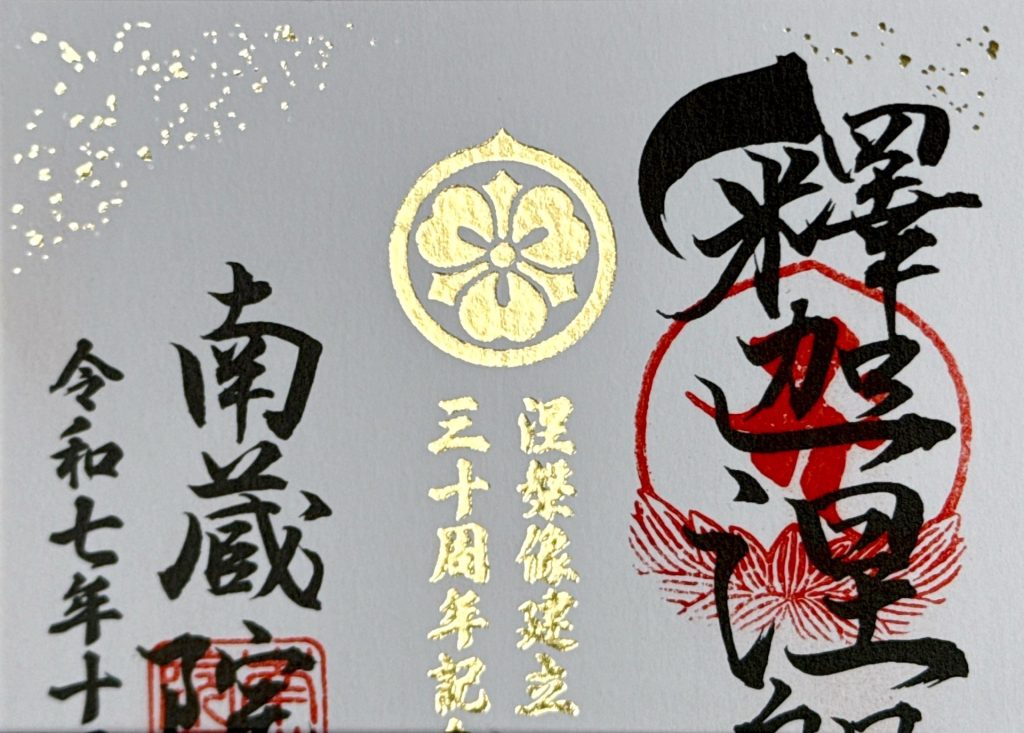 釋迦涅
涅槃像建立
三十周年記
南蔵院
令和七年十